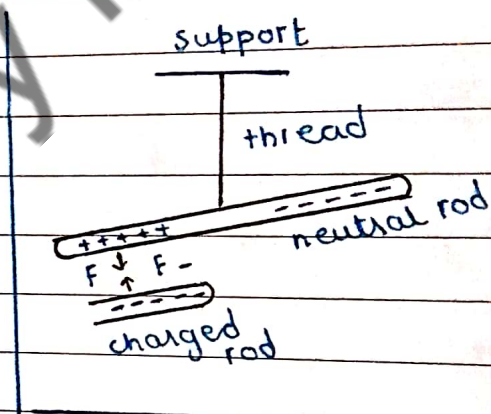 support
thread
+ + + + +
- - - - - -
neutral rod
F ↓ F -
↑
- - - - - -
charged
rod